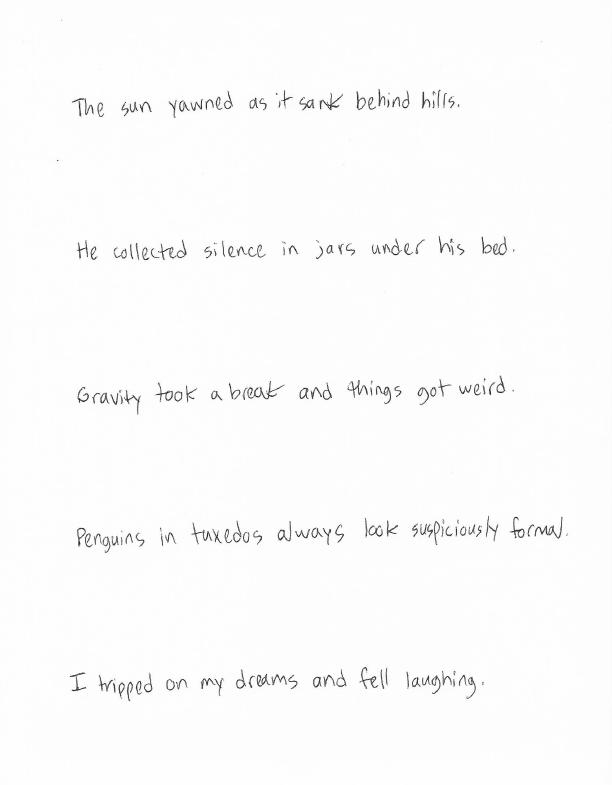 The sun yawned as it sank behind hills.
He collected silence in jars under his bed.
Gravity took a break and things got weird.
Penguins in tuxedos always look suspiciously formal.
I tripped on my dreams and fell laughing.